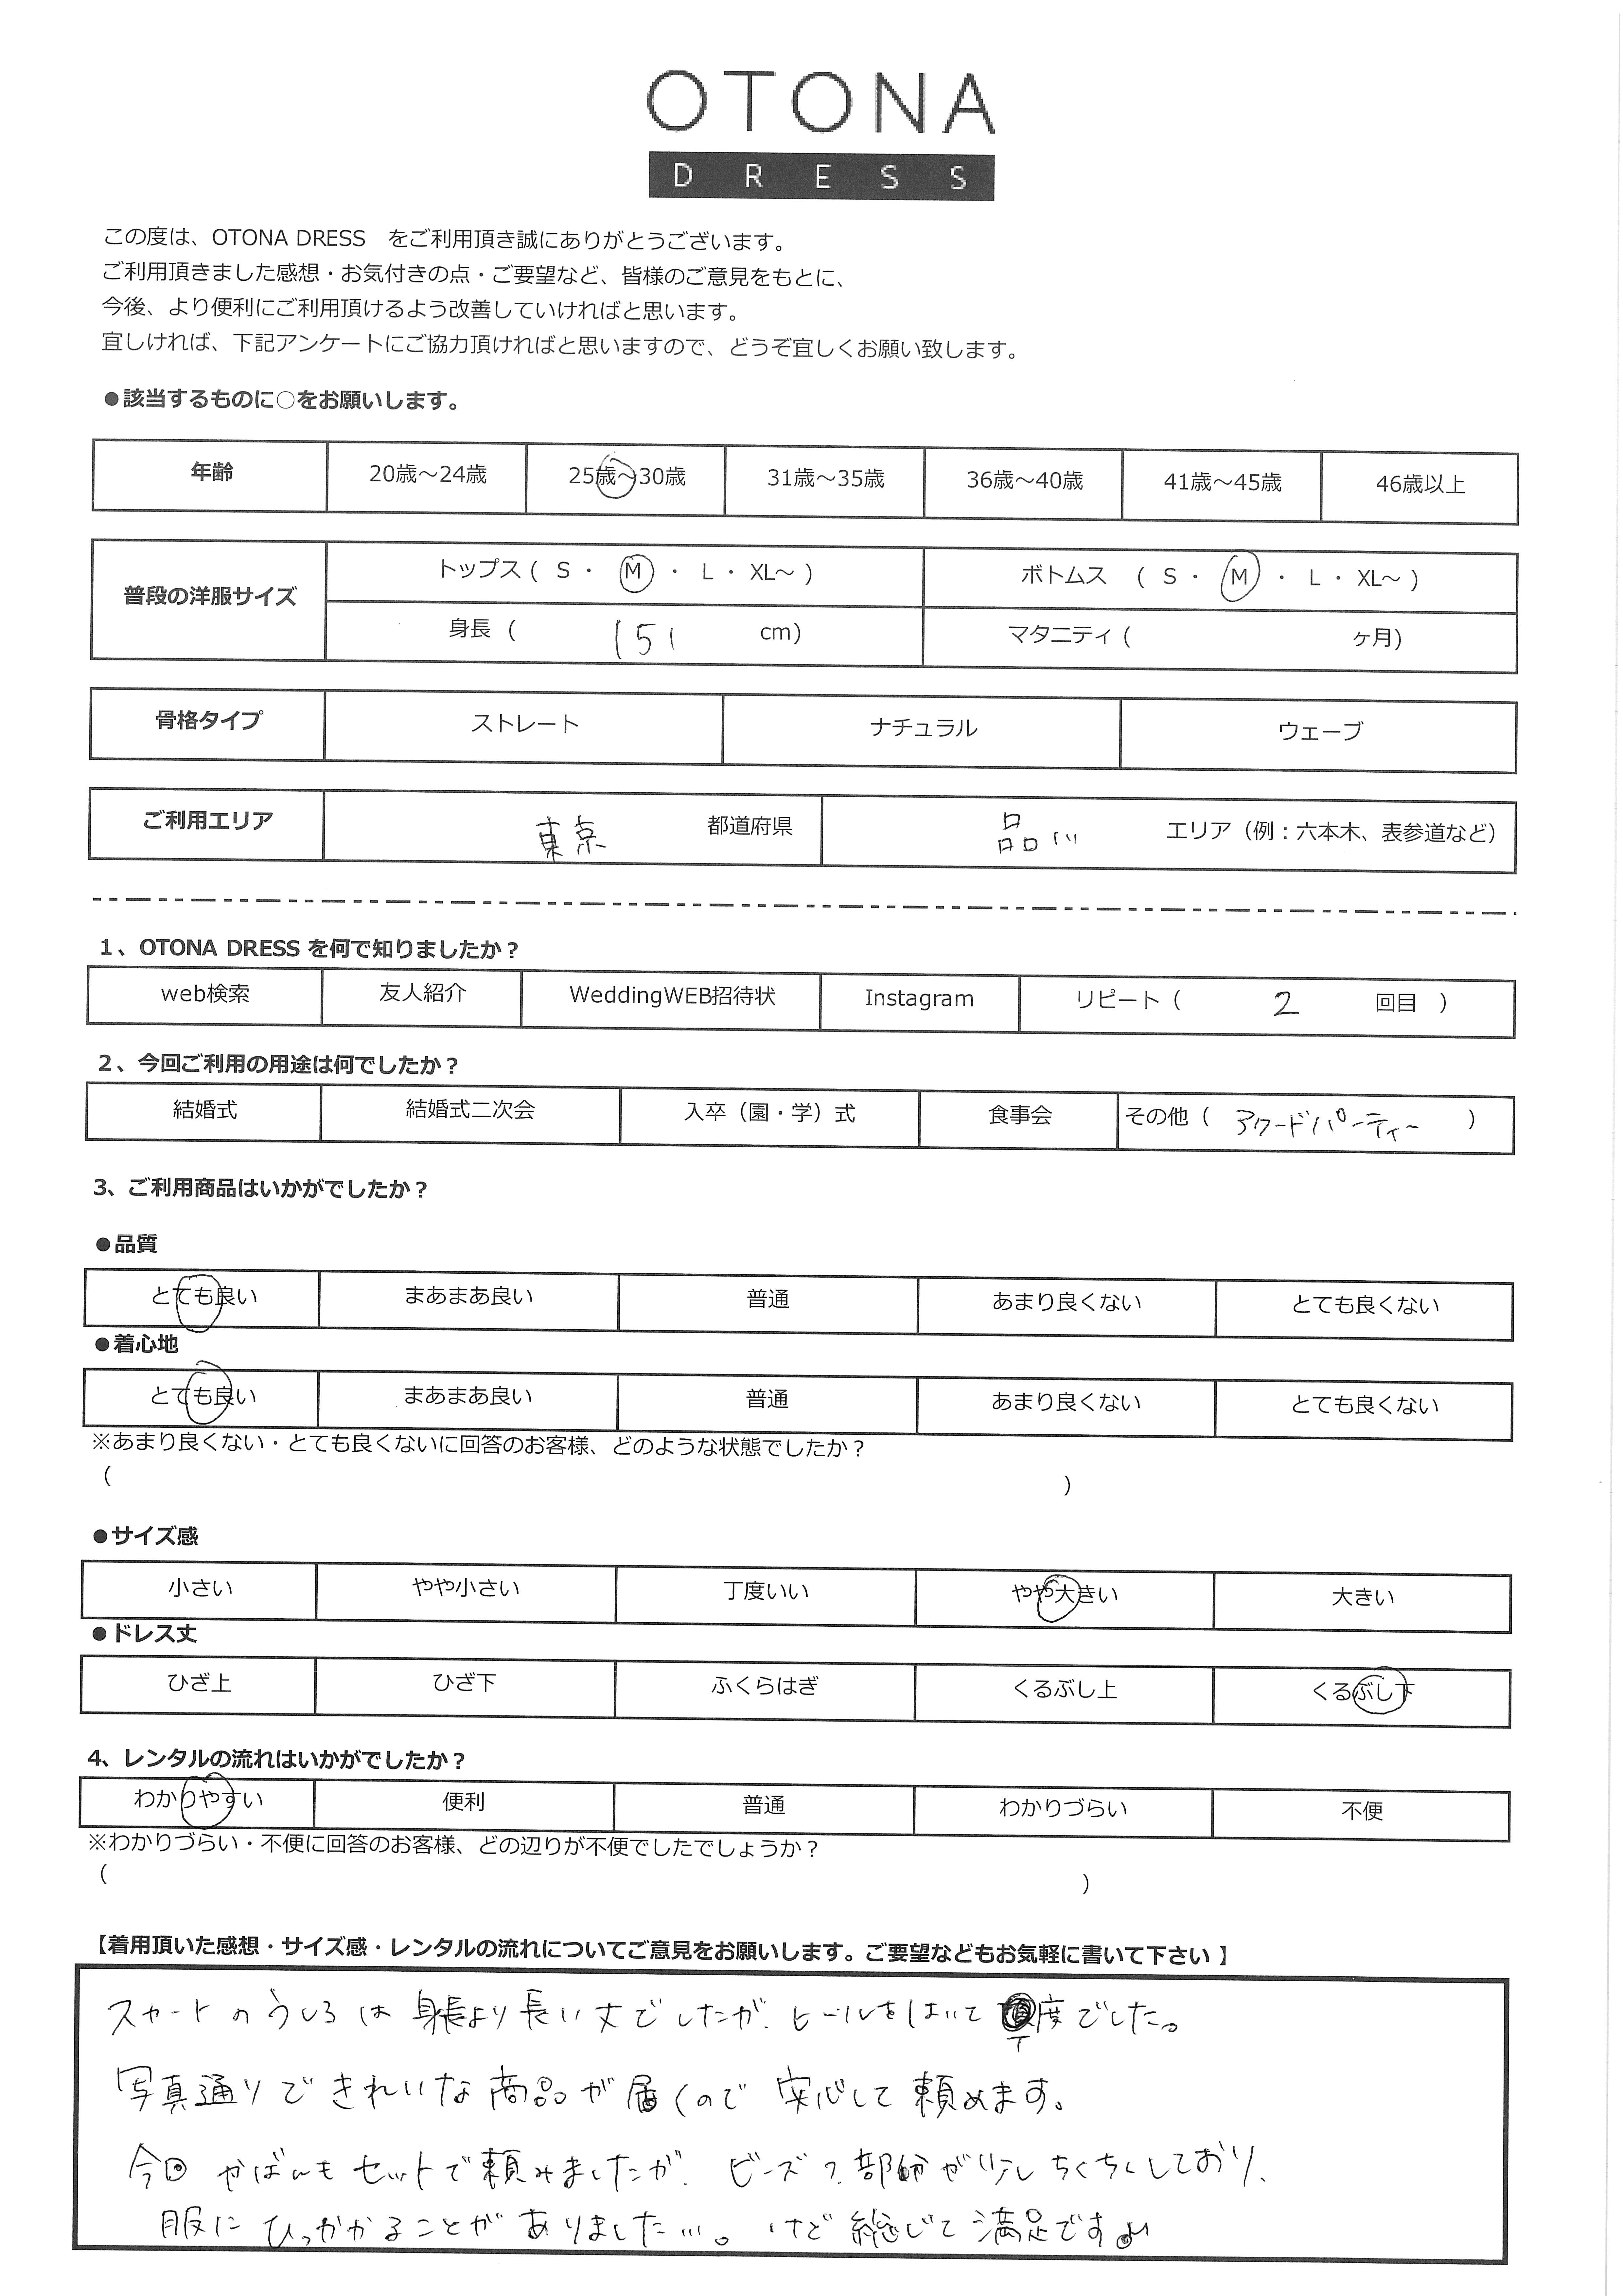 OTONA
DRESS
この度は、OTONA DRESS　をご利用頂き誠にありがとうございます。
ご利用頂きました感想・お気付きの点・ご要望など、皆様のご意見をもとに、
今後、より便利にご利用頂けるよう改善していければと思います。
宜しければ、下記アンケートにご協力頂ければと思いますので、どうぞ宜しくお願い致します。
●該当するものに○をお願いします。
年齢 20歳～24歳 25歳～30歳 31歳～35歳 36歳～40歳 41歳～45歳 46歳以上
普段の洋服サイズ
トップス ( S ・ M ・ L ・ XL～ ) ボトムス ( S ・ M ・ L ・ XL～ )
身長 ( 151 cm) マタニティ ( ヶ月)
骨格タイプ ストレート ナチュラル ウェーブ
ご利用エリア 東京 都道府県 品川 エリア（例：六本木、表参道など）
1、OTONA DRESS を何で知りましたか？
web検索 友人紹介 WeddingWEB招待状 Instagram リピート（ 2 回目 ）
2、今回ご利用の用途は何でしたか？
結婚式 結婚式二次会 入卒（園・学）式 食事会 その他（ アワードパーティー ）
3、ご利用商品はいかがでしたか？
●品質
とても良い まあまあ良い 普通 あまり良くない とても良くない
●着心地
とても良い まあまあ良い 普通 あまり良くない とても良くない
※あまり良くない・とても良くないに回答のお客様、どのような状態でしたか？
( )
●サイズ感
小さい やや小さい 丁度いい やや大きい 大きい
●ドレス丈
ひざ上 ひざ下 ふくらはぎ くるぶし上 くるぶし下
4、レンタルの流れはいかがでしたか？
わかりやすい 便利 普通 わかりづらい 不便
※わかりづらい・不便に回答のお客様、どの辺りが不便でしたでしょうか？
( )
【着用頂いた感想・サイズ感・レンタルの流れについてご意見をお願いします。ご要望などもお気軽に書いて下さい 】
スカートのうしろは身長より長い丈でしたが、ヒールをはいて丁度でした。
写真通りできれいな商品が届くので安心して頼めます。
今回かばんもセットで頼みましたが、ビーズの部分が少しちくちくしており、
服にひっかかることがありました…。けど総じて満足です♪